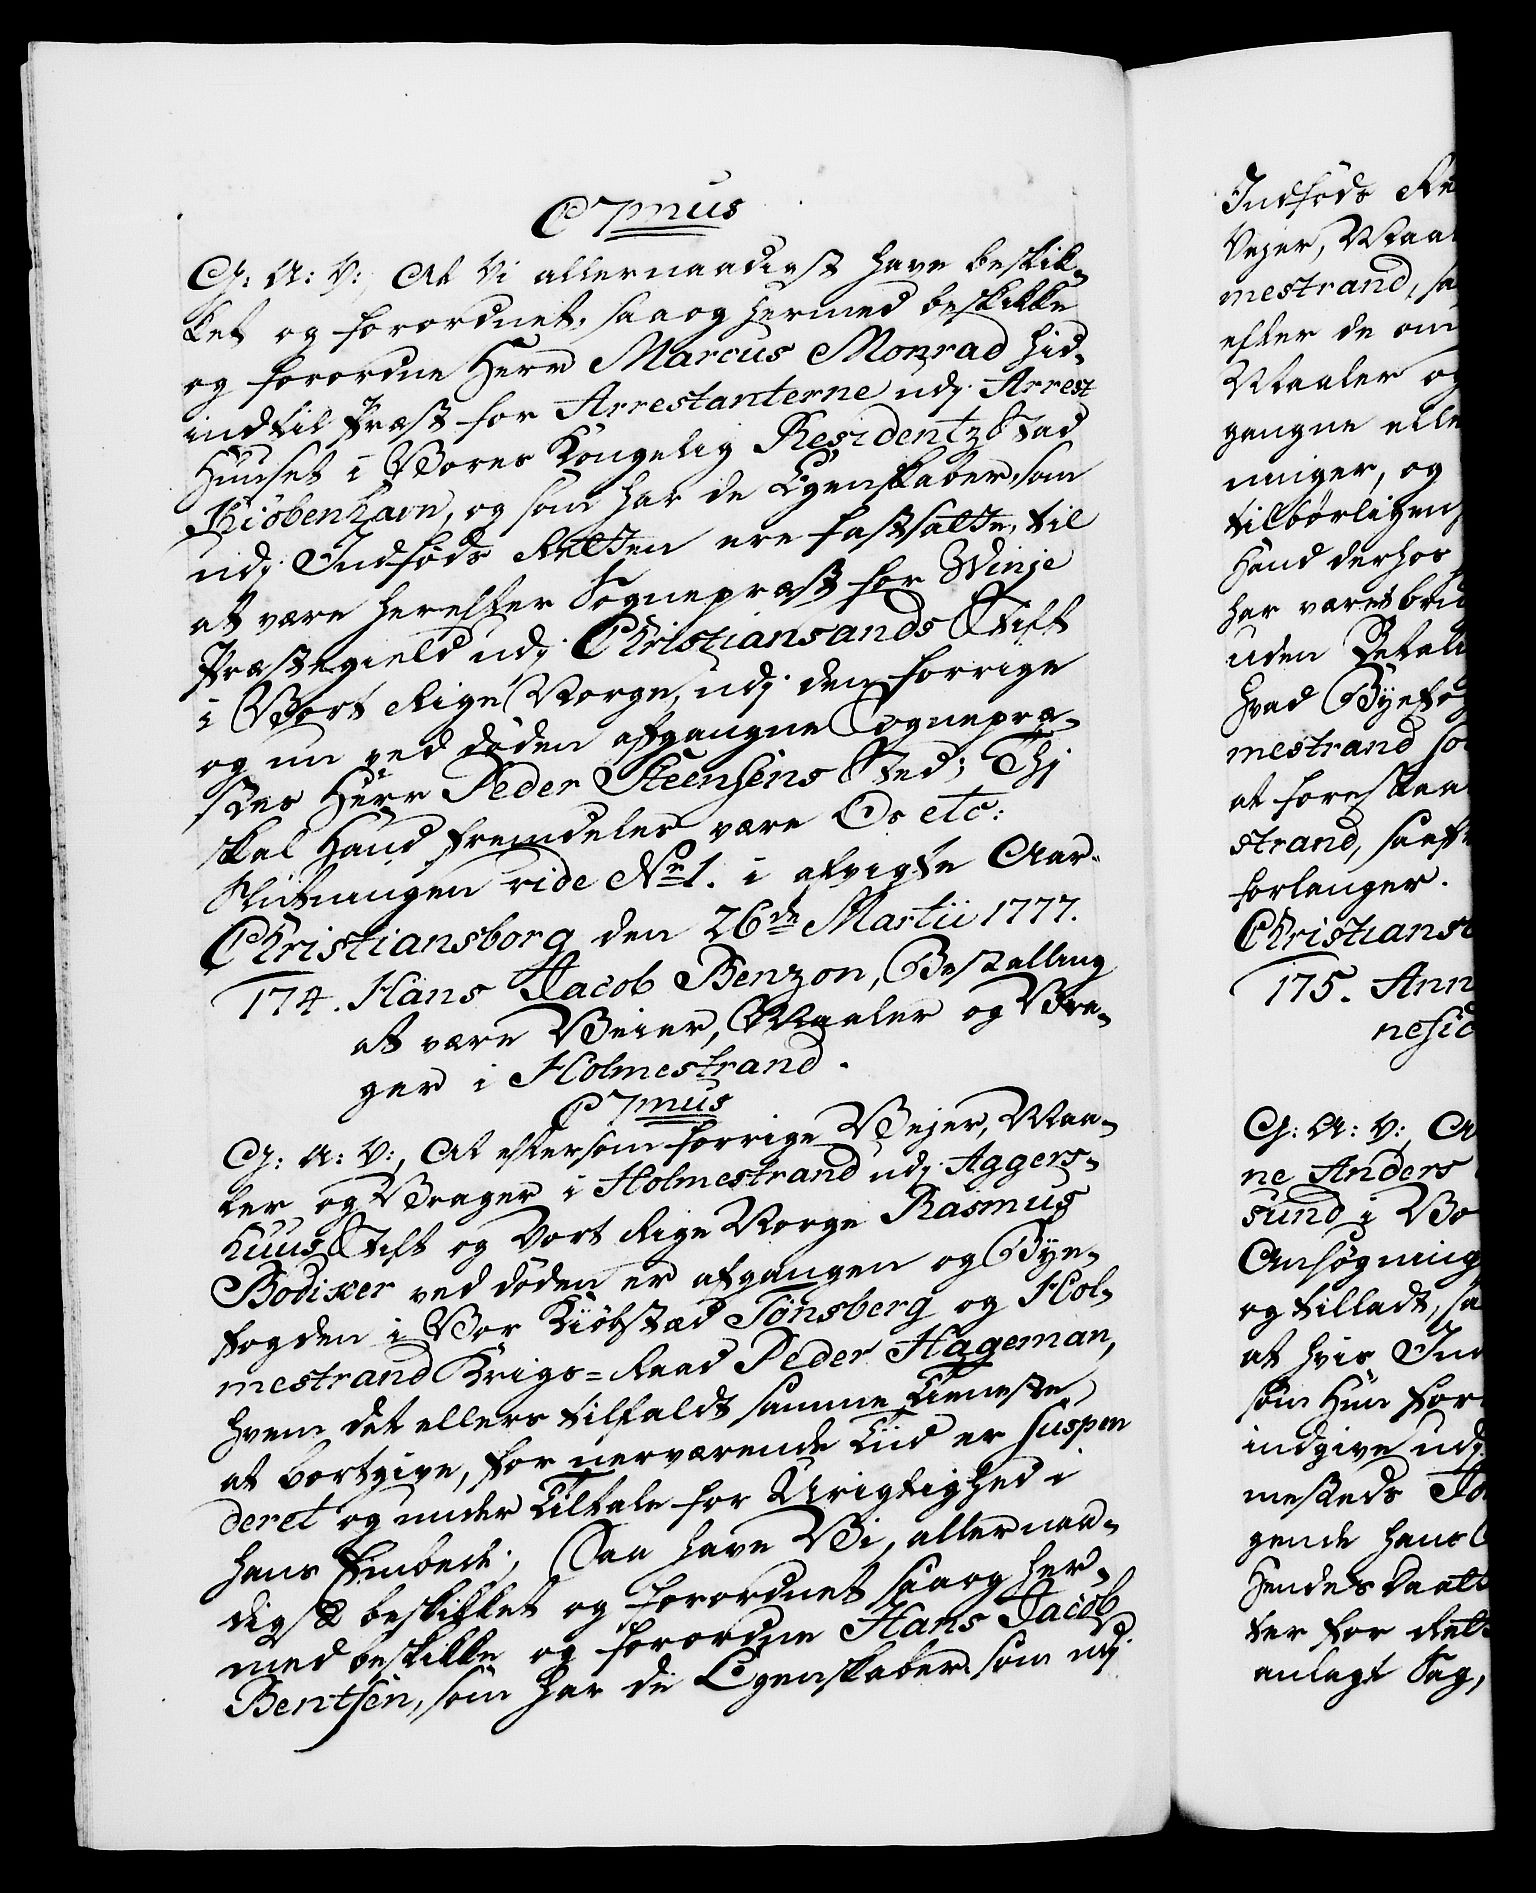 C7mus
G: A: V:, At Vi allernaadigst have beskik-
ket og forordnet, saa og hermed beskikke
og forordne Herr Marcus Monrad hid-
indtil Præst for Arrestanterne udj Arrest
Huuset i Vores Kongelig Residentz Stad
Kiöbenhavn, og som har de Egenskaber, som
udj Indføds Retten ere fastsatte, til
at være herefter Sognepræst for Winje
Præstegield udj Christiansands Stift
i Vort Rige Norge, udj den forrige
og nu ved döden afgangne Sognepræ-
stes Herr Peder Steensens Sted; Thj
skal Hand fremdeles være Os etc:
Slutningen vide No 1. i afvigte Aar.
Christiansborg den 26de Martii 1777.
174. Hans Jacob Benzon, Bestalling
at være Veier, Maaler og Vra-
ger i Holmestrand.
C7mus
G: A: V:, At eftersom forrige Vejer, Maa-
ler og Vrager i Holmestrand udj Aggers-
huus Stift og Vort Rige Norge Rasmus
Bodixer ved döden er afgangen og Bye-
fogden i Vor Kiöbstæd Tönsberg og Hol-
mestrand Krigs=Raad Peder Hageman,
hvem det ellers tilfaldt samme Tieneste
at bortgive, for nerværende Tiid er suspen
deret og under Tiltale for Urigtighed i
hans Embede; Saa have Vi, allernaa-
digst beskikket og forordnet saa og her-
med beskikke og forordne Hans Jacob
Bentsen, som har de Egenskaber som udj
Indføds Re
Vejer, Maa
mestrand, sa
efter de om
Maaler og
gangne elle
ninger, og
tilbørligen
Hand derhos
har været brug
uden Betali
hvad Byefog
mestrand so
at foreskaa
strand, saaf
forlanger.
Christiansb
175. Ann
nesid
G: A: V:, A
ne Anders
sund i Vo
Ansøgning
og tilladt, sa
at hvis Ind
som Hun for
indgive udj
mesteds Jo
gende hans
Hendes Datt
ter for Rett
anlagt Sag,